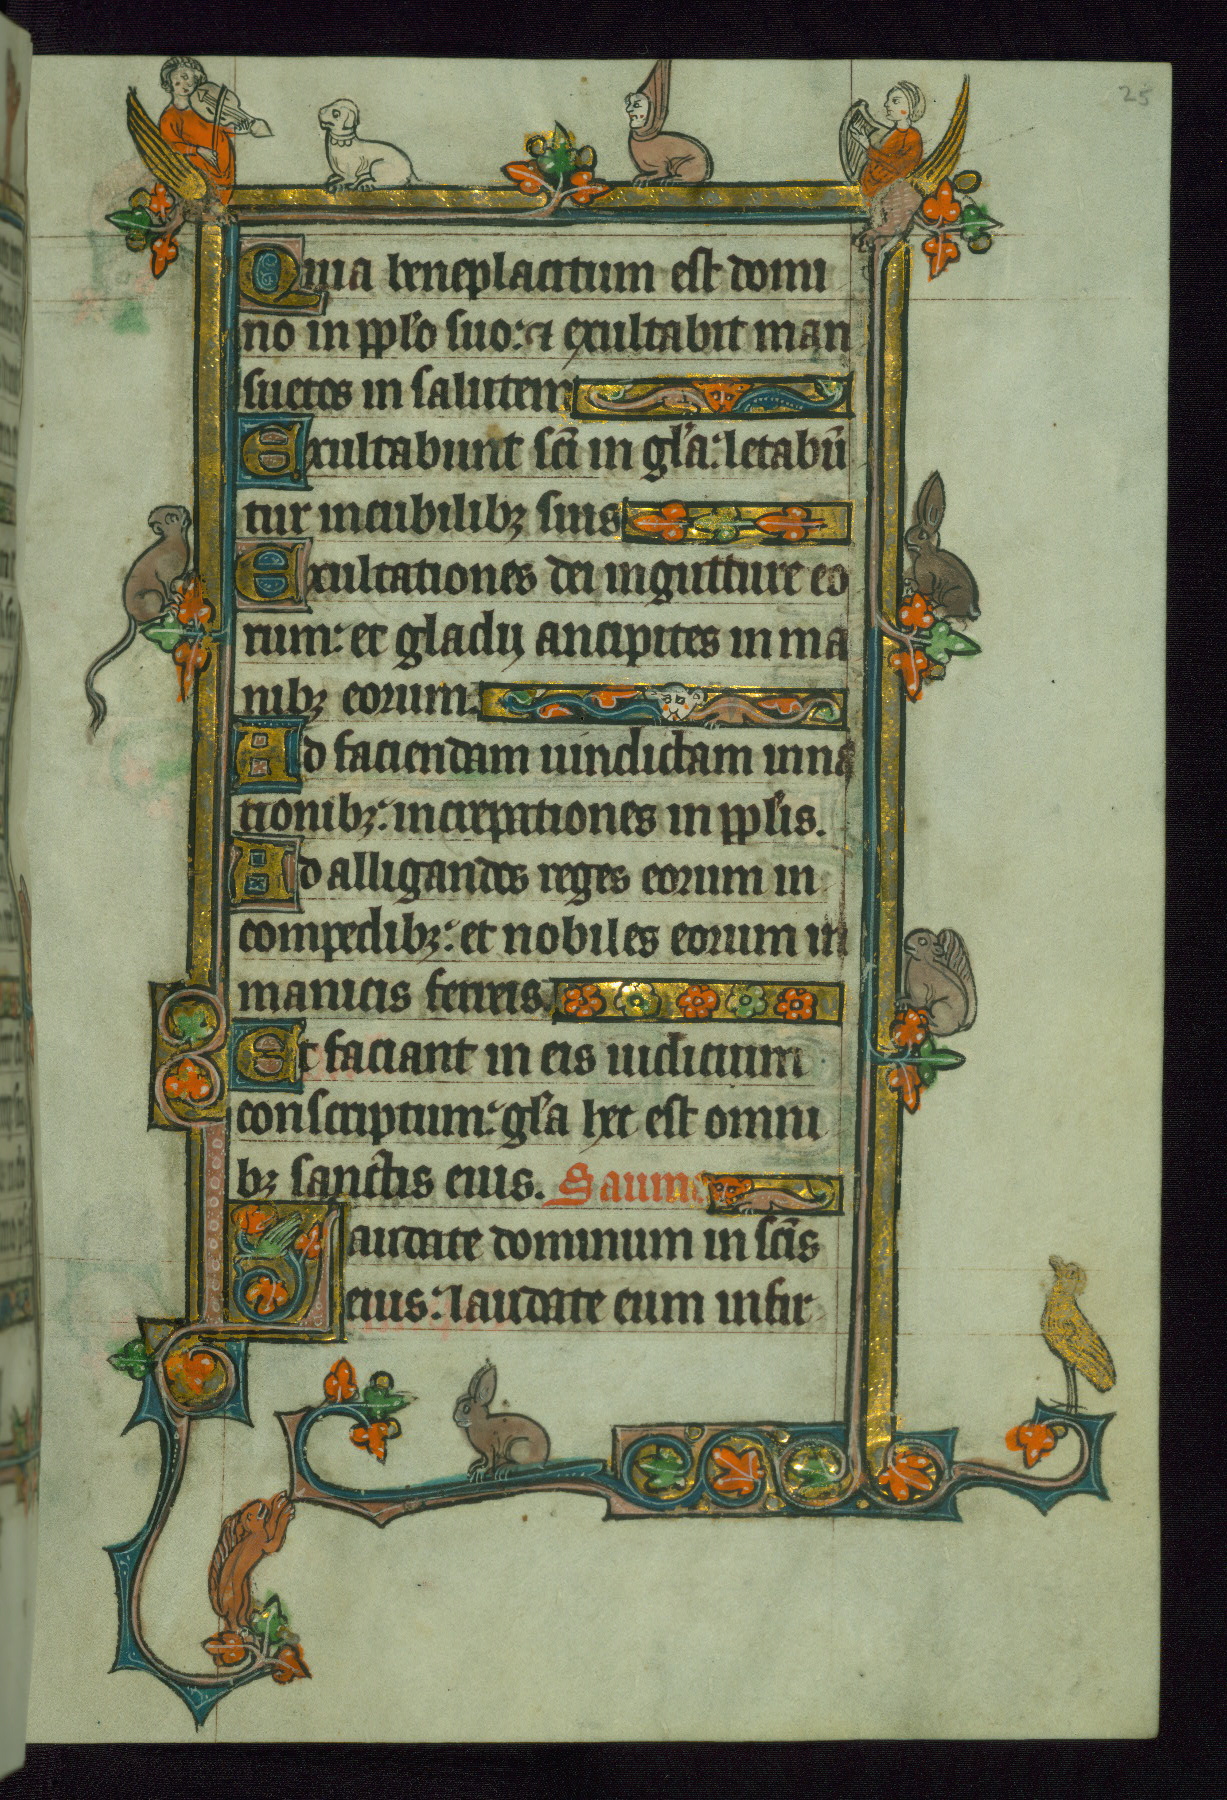 25
Quia beneplacitum est domi
no in ppl'o suo: et exultabit man
suetos in salutem
Exultabunt sc̄i in gl'a: letabū
tur in cubilibꝫ suis
Exultationes dei in gutture eo
rum: et gladij ancipites in ma
nibꝫ eorum.
Ad faciendam uindictam in na
tionibꝫ: increpationes in ppl'is.
Ad alligandos reges eorum in
compedibꝫ: et nobiles eorum in
manicis ferreis.
Et faciant in eis iudicium
conscriptum: gl'a hec est omni
bꝫ sanctis eius.
Laudate dominum in sc̄is
eius: laudate eum in fir